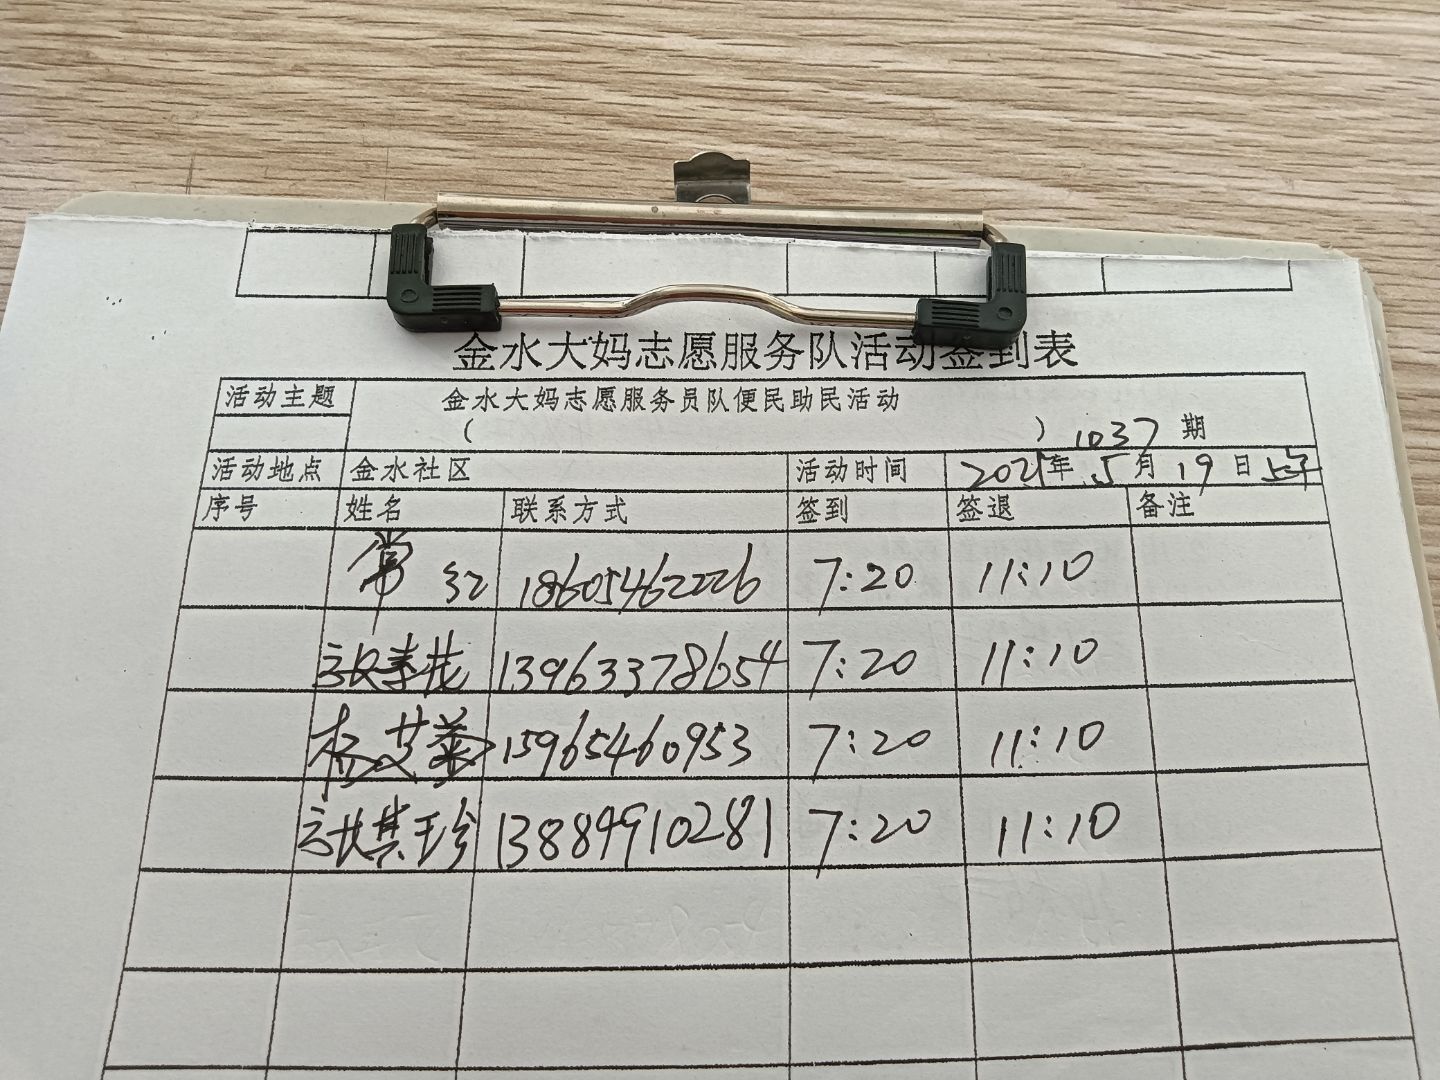 金水大妈志愿服务队活动签到表
活动主题 金水大妈志愿服务员队便民助民活动
( ) 1037 期
活动地点 金水社区 活动时间 2021年 5月 19日 上午
序号 姓名 联系方式 签到 签退 备注
常红 18605462226 7:20 11:10
张秀花 13963378654 7:20 11:10
杨艾 15965460953 7:20 11:10
张其珍 13884910281 7:20 11:10